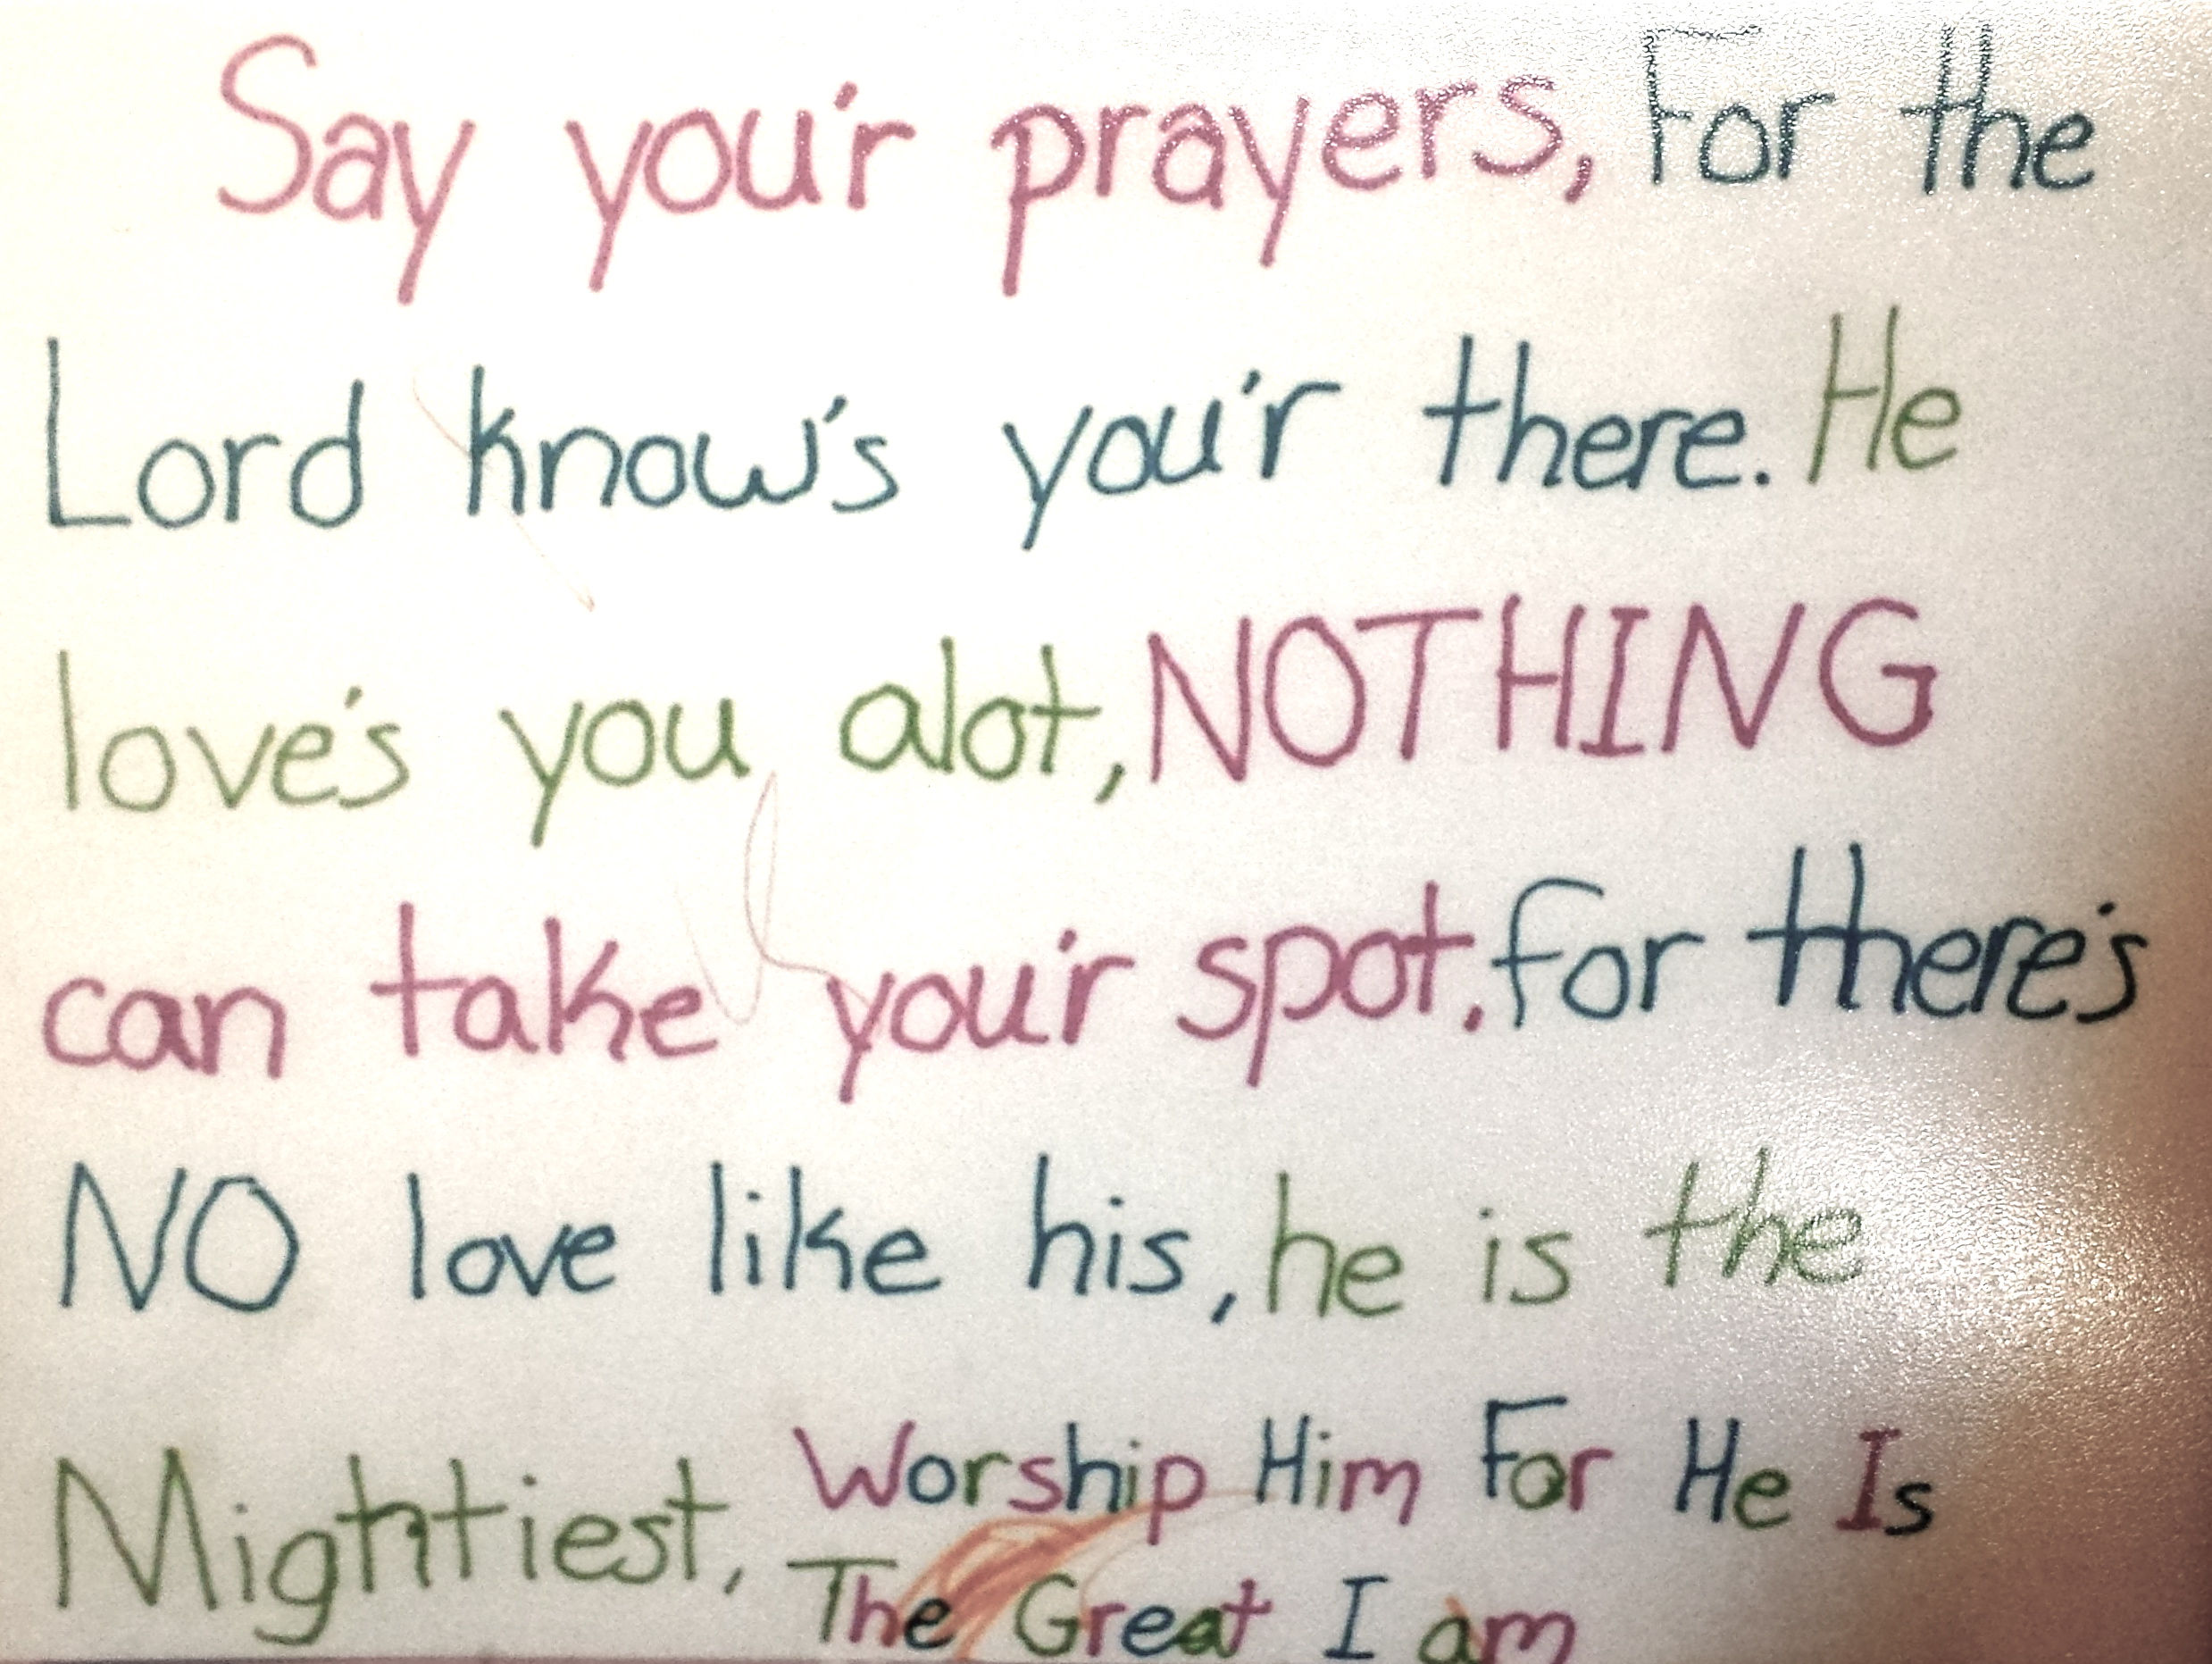 Say you'r prayers, For the
Lord know's you'r there. He
love's you alot, NOTHING
can take you'r spot. for there's
NO love like his, he is the
Mightiest, Worship Him For He Is
The Great I am